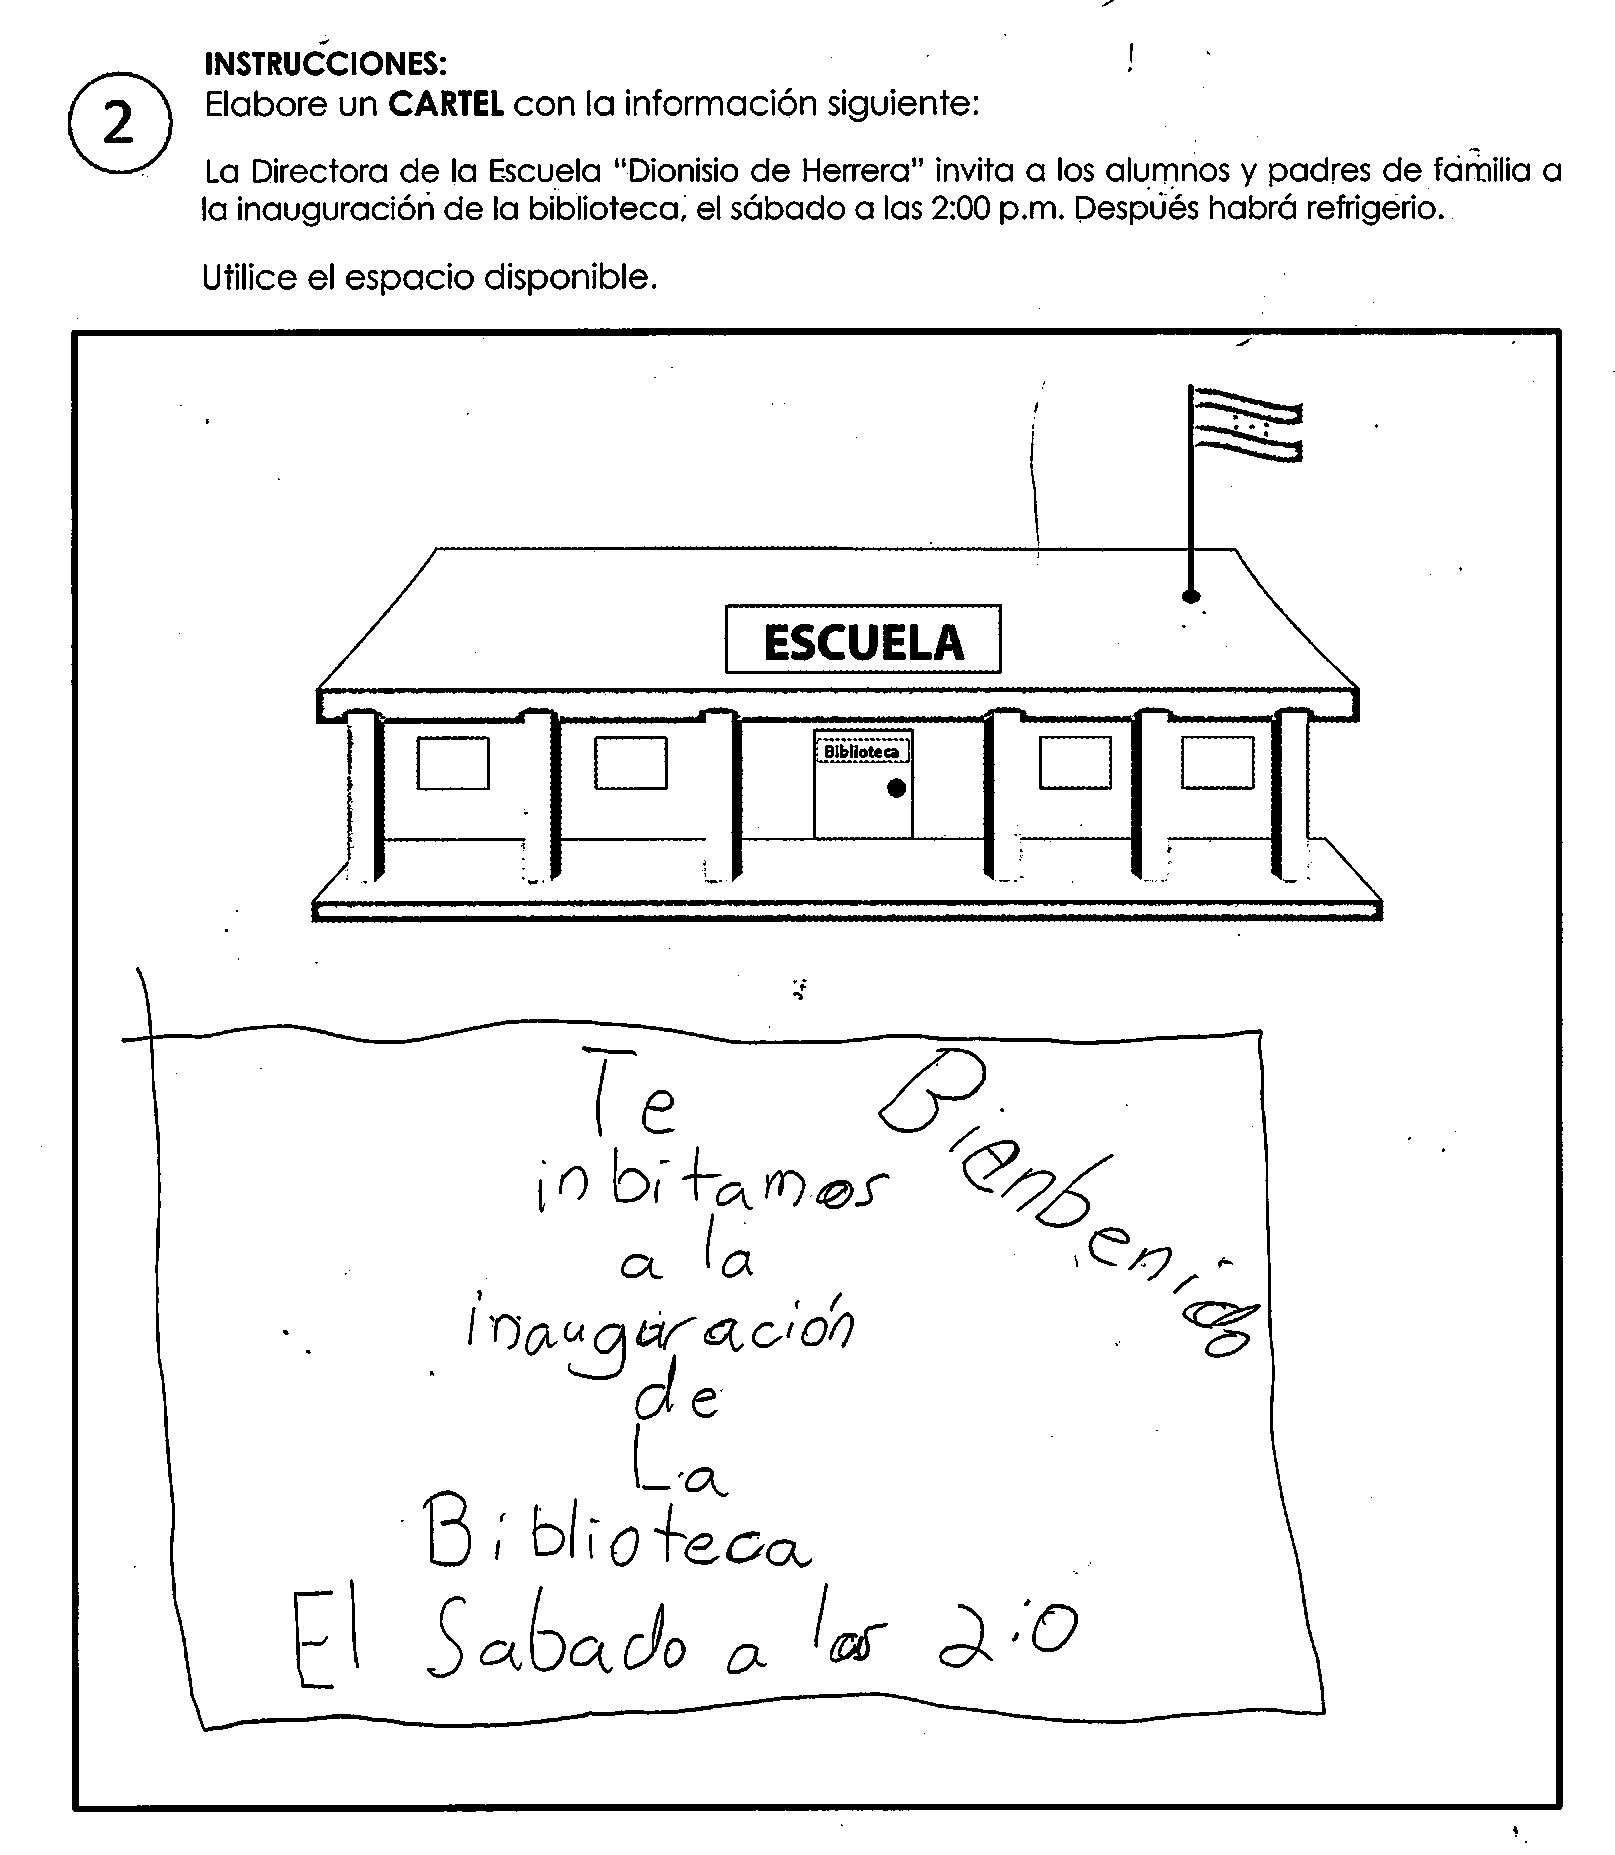 INSTRUCCIONES:
2
Elabore un CARTEL con la información siguiente:
La Directora de la Escuela "Dionisio de Herrera" invita a los alumnos y padres de familia a
la inauguración de la biblioteca, el sábado a las 2:00 p.m. Después habrá refrigerio.
Utilice el espacio disponible.
ESCUELA
Biblioteca
Te
inbitamos
a la
inauguración
de
La
Biblioteca
El Sabado a las 2:0
Bienbenido